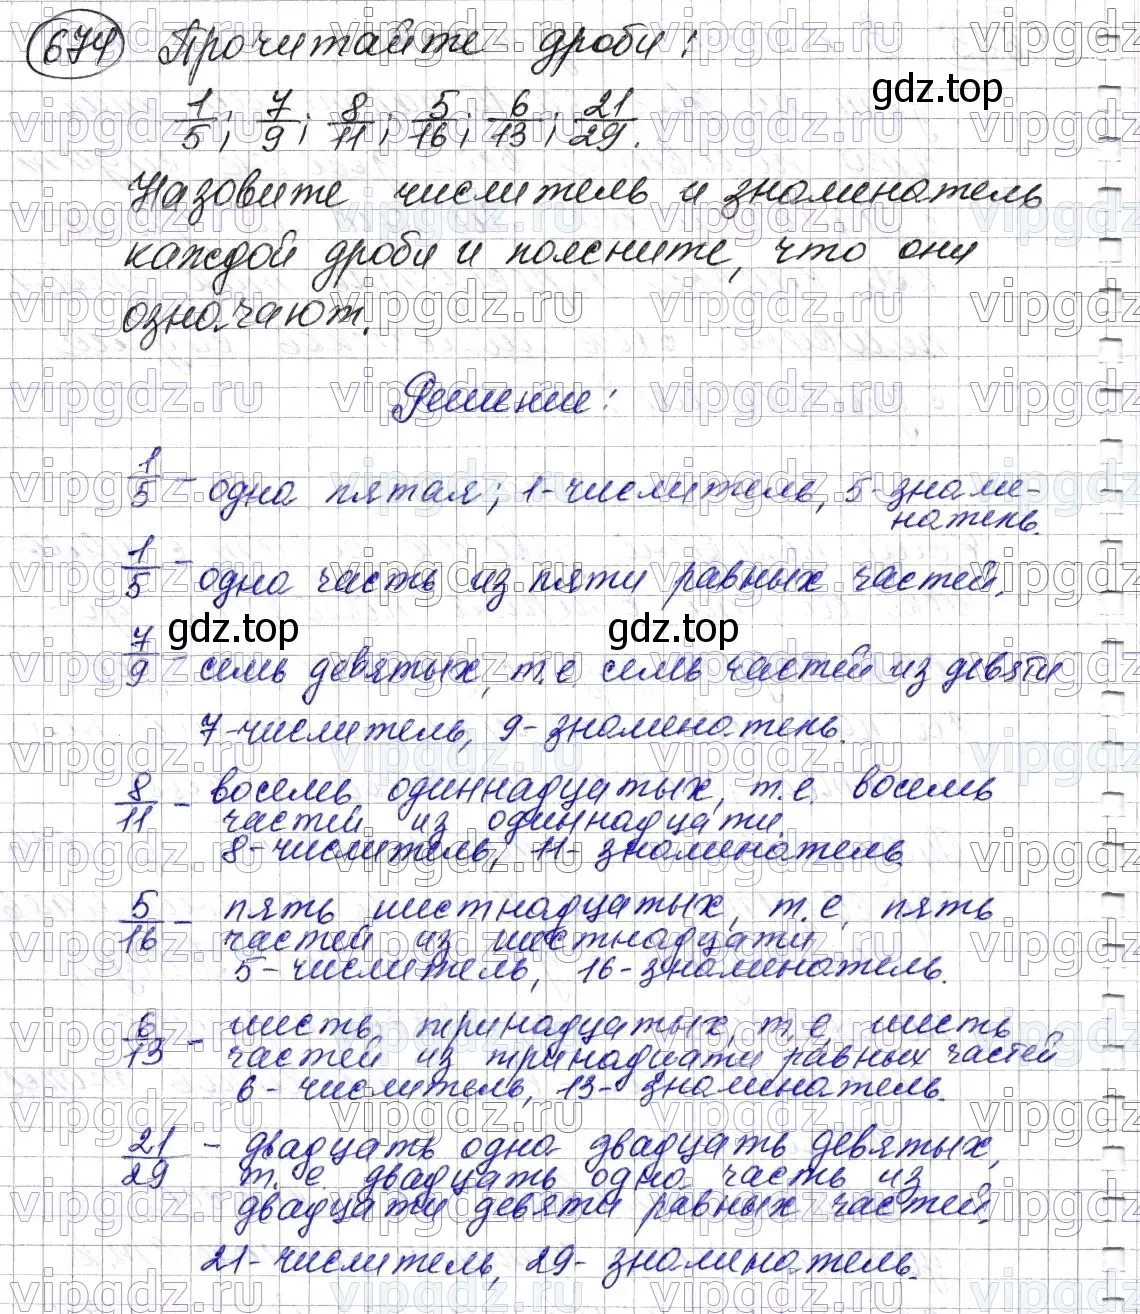 674 Прочитайте дроби:
1/5; 7/9; 8/11; 5/16; 6/13; 21/29.
gdz.top
Назовите числитель и знаменатель
каждой дроби и поясните, что они
означают.
Решение:
1/5 - одна пятая; 1-числитель, 5-знаме-
натель.
1/5 - одна часть из пяти равных частей.
gdz.top gdz.top
7/9 - семь девятых, т.е. семь частей из девяти
7-числитель, 9-знаменатель.
8/11 - восемь одиннадцатых, т.е. восемь
частей из одиннадцати.
8-числитель, 11-знаменатель.
5/16 - пять шестнадцатых, т.е. пять
частей из шестнадцати
5-числитель, 16-знаменатель.
6/13 - шесть тринадцатых, т.е. шесть
частей из тринадцати равных частей
6-числитель, 13-знаменатель.
21/29 - двадцать одна двадцать девятых,
т.е. двадцать одна часть из
двадцати девяти равных частей.
21-числитель, 29-знаменатель.
vipgdz.ru